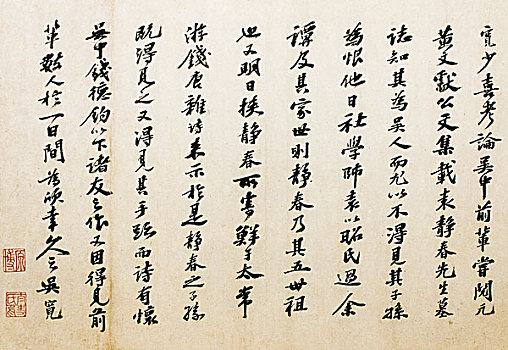 寬少喜考論吳中前輩嘗閱元
黃文獻公文集載袁靜春先生墓
誌知其為吳人而尤以不得見其子孫
為恨他日社學師袁以昭氏過余
譚及其家世則靜春乃其五世祖
也又明日挾靜春所書鮮于太常
游錢唐雜詩来示於是靜春之子孫
既得見之又得見其手跡而詩有懷
吳中錢德鈞以下諸友之作又因得見前
輩數人於一日間幸久之吳寬
原博